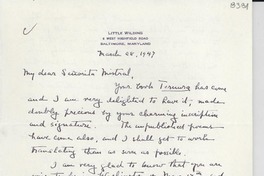 LITTLE WILDING
4 WEST HIGHFIELD ROAD
BALTIMORE, MARYLAND
March 28, 1947
My dear Señorita Mistral,
Your book Ternura has come
and I am very delighted to have it; made
doubly precious by your charming inscription
and signature. The unpublished poems
have come also, and I shall get to work
translating them as soon as possible.
I am very glad to know that you are